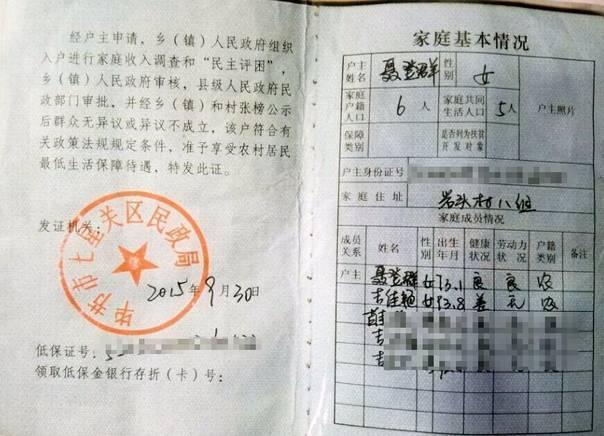 经户主申请,乡(镇)人民政府组织
入户进行家庭收入调查和“民主评困”,
乡(镇)人民政府审核,县级人民政府民
政部门审批,并经乡(镇)和村张榜公示
后群众无异议或异议不成立,该户符合有
关政策法规规定条件,准予享受农村居民
最低生活保障待遇,特发此证。
发证机关:
毕节市七星关区民政局
2015年9月30日
低保证号:
领取低保金银行存折(卡)号:
家庭基本情况
户主姓名 聂登群 性别 女
家庭户籍人口 6人 家庭共同生活人口 5人 户主照片
保障类别 是否列为扶贫开发对象
户主身份证号
家庭住址 岩头村八组
家庭成员情况
成员关系 姓名 性别 出生年月 健康状况 劳动力状况 户籍类别 备注
户主 聂登群 女 73.1 良 良 农
吉佳 女 93.8 差 无 农